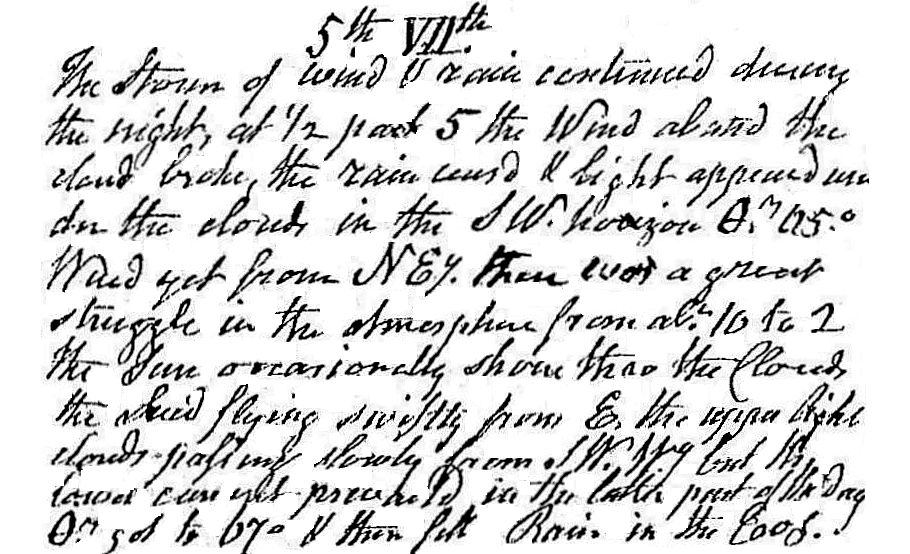 5th VIIth.
The Storm of wind & rain continued during
the night, at 1/2 past 5 the Wind abated the
cloud broke, the rain ceas'd & light appeared un
der the clouds in the SW. horizon
Wind yet from NEy. there was a great
struggle in the atmosphere from abt. 10 to 2
the Sun occasionally shone thro the Clouds
the Scud flying swiftly from E. the upper light
clouds passing slowly from SW. but the
lower current prevailed in the latter part of the Day
got to 67° & then fell Rain in the